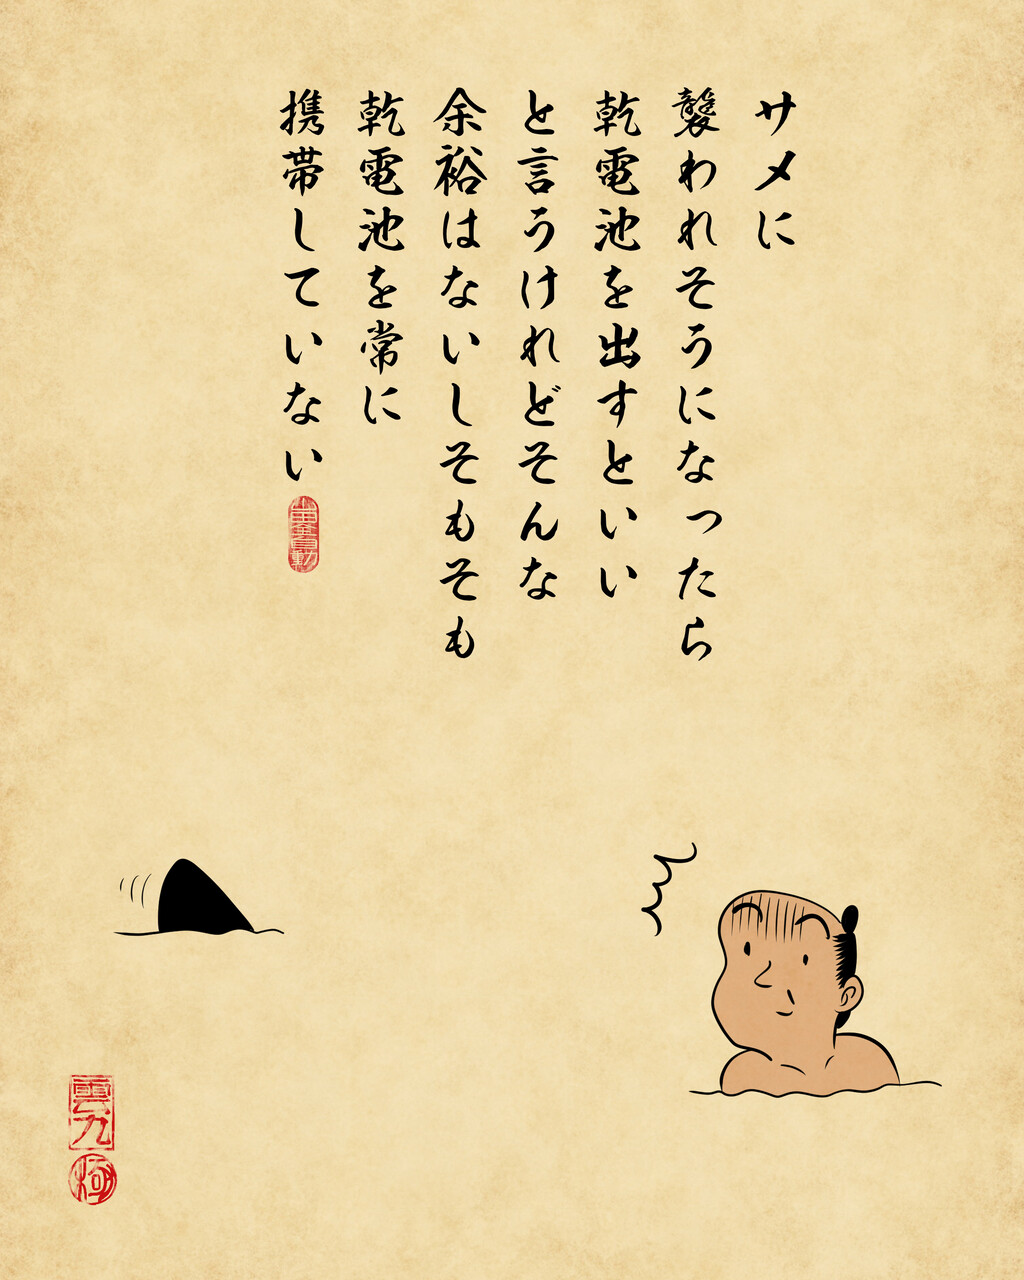 サメに
襲われそうになったら
乾電池を出すといい
と言うけれどそんな
余裕はないしそもそも
乾電池を常に
携帯していない